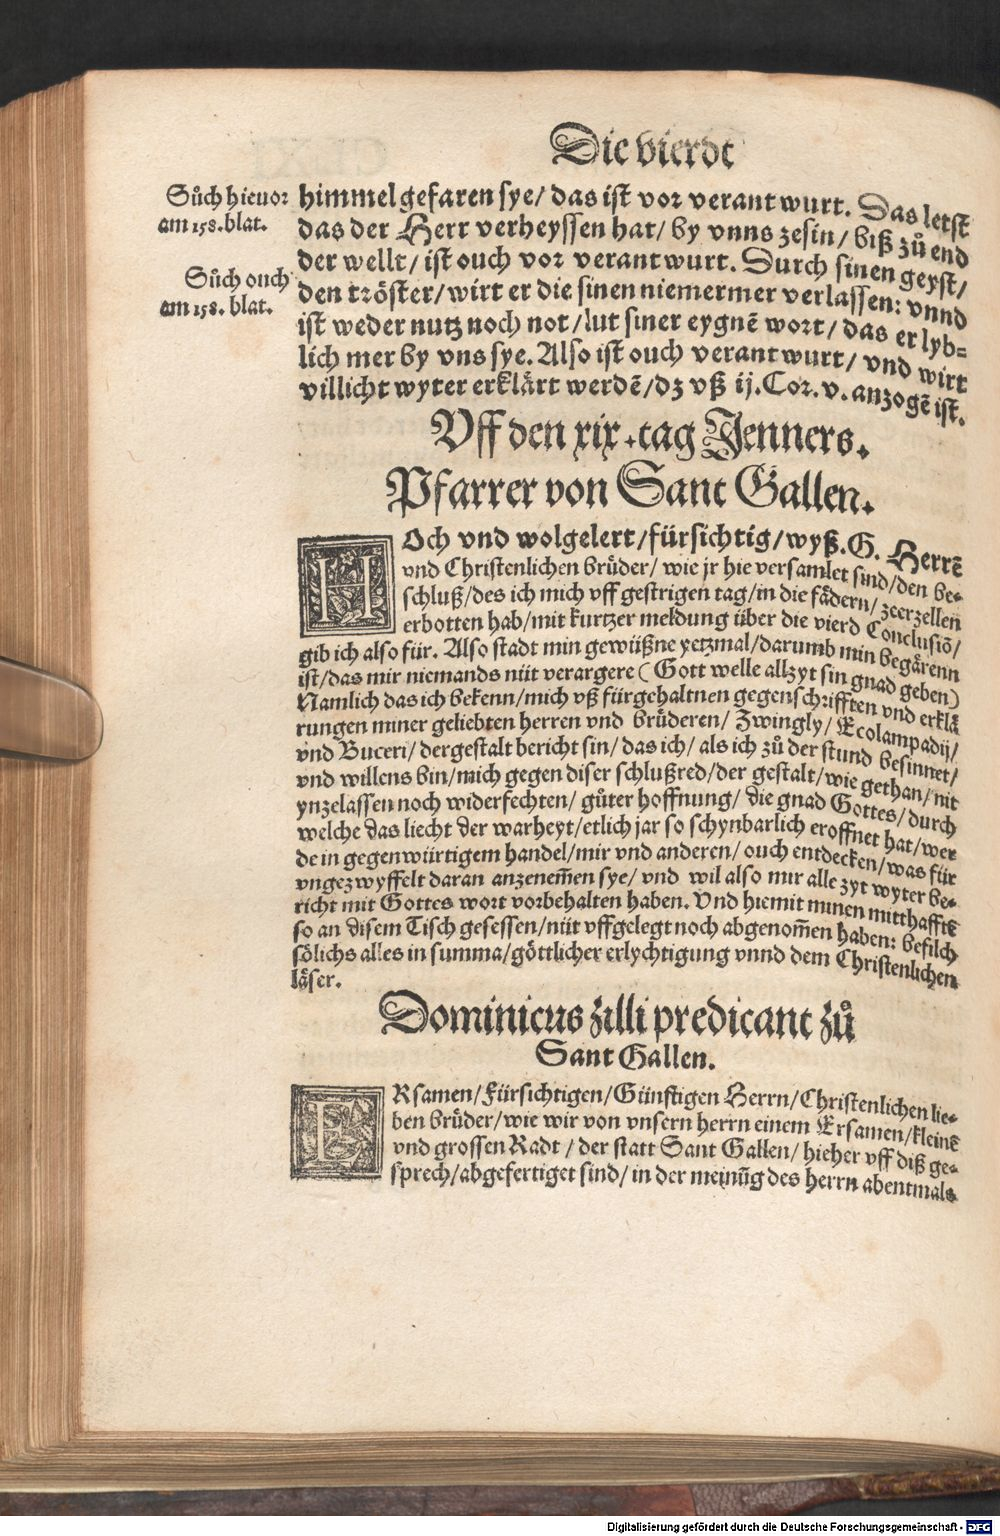 Die vierdt
Sůch hieuor
am 158. blat.
Sůch ouch
am 158. blat.
himmel gefaren sye/ das ist vor verantwurt. Das letst
das der Herr verheyssen hat/ by vnns zesin/ biß zů end
der wellt/ ist ouch vor verantwurt. Durch sinen geyst/
den tröster/ wirt er die sinen niemermer verlassen: vnnd
ist weder nutz noch not/ lut siner eygnē wort/ das er lyb-
lich mer by vns sye. Also ist ouch verantwurt/ vnd wirt
villicht wyter erklårt werdē/ dz vß ij. Cor. v. anzogē ist.
Vff den xix. tag Jenners.
Pfarrer von Sant Gallen.
HOch vnd wolgelert/ fürsichtig/ wyß. G. Herrē
vnd Christenlichen brůder/ wie jr hie versamlet sind/ den be-
schluß/ des ich mich vff gestrigen tag/ in die fådern/ zeerzellen
erbotten hab/ mit kurtzer meldung über die vierd Conclusiō/
gib ich also für. Also stadt min gewüßne yetzmal/ darumb min begårenn
ist/ das mir niemands nüt verargere (Gott welle allzyt sin gnad geben)
Namlich das ich bekenn/ mich vß fürgehaltnen gegenschrifften vnd erklå
rungen miner geliebten herren vnd brůderen/ Zwingly/ Ecolampadij/
vnd Buceri/ dergestalt bericht sin/ das ich/ als ich zů der stund besinnet/
vnd willens bin/ mich gegen diser schlußred/ der gestalt/ wie gethan/ nit
ynzelassen noch widerfechten/ gůter hoffnung/ die gnad Gottes/ durch
welche das liecht der warheyt/ etlich jar so schynbarlich eroffnet hat/ wer
de in gegenwürtigem handel/ mir vnd anderen/ ouch entdecken/ was für
vngezwyffelt daran anzenem̄en sye/ vnd wil also mir alle zyt wyter be-
richt mit Gottes wort vorbehalten haben. Vnd hiemit minen mitthafftē
so an disem Tisch gesessen/ nüt vffgelegt noch abgenom̄en haben: befilch
sölichs alles in summa/ göttlicher erlychtigung vnnd dem Christenlichen
låser.
Dominicus zilli predicant zů
Sant Gallen.
ERsamen/ Fürsichtigen/ Günstigen Herrn/ Christenlichen lie-
ben brůder/ wie wir von vnsern herrn einem Ersamen/ kleinē
vnd grossen Radt/ der statt Sant Gallen/ hieher vff diß ge-
sprech/ abgefertiget sind/ in der meinūg des herrn abentmals
Digitalisierung gefördert durch die Deutsche Forschungsgemeinschaft - DFG